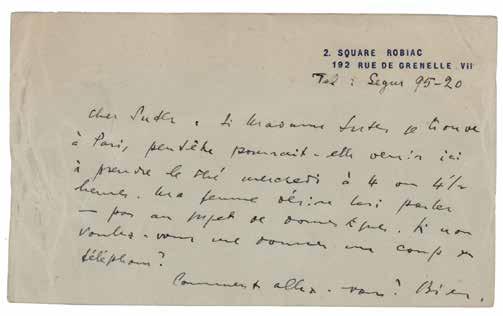 2. SQUARE ROBIAC
192 RUE DE GRENELLE. VII
Tel : Segur 95-20
Cher Suter. Si Madame Suter se trouve
à Paris, peutêtre pourrait-elle venir ici
à prendre le thé mercredi à 4 ou 4½
heures. Ma femme désire lui parler
— pas au sujet de domestiques. Si non
voulez-vous me donner un coup de
téléphone?
Comment allez-vous? Bien.